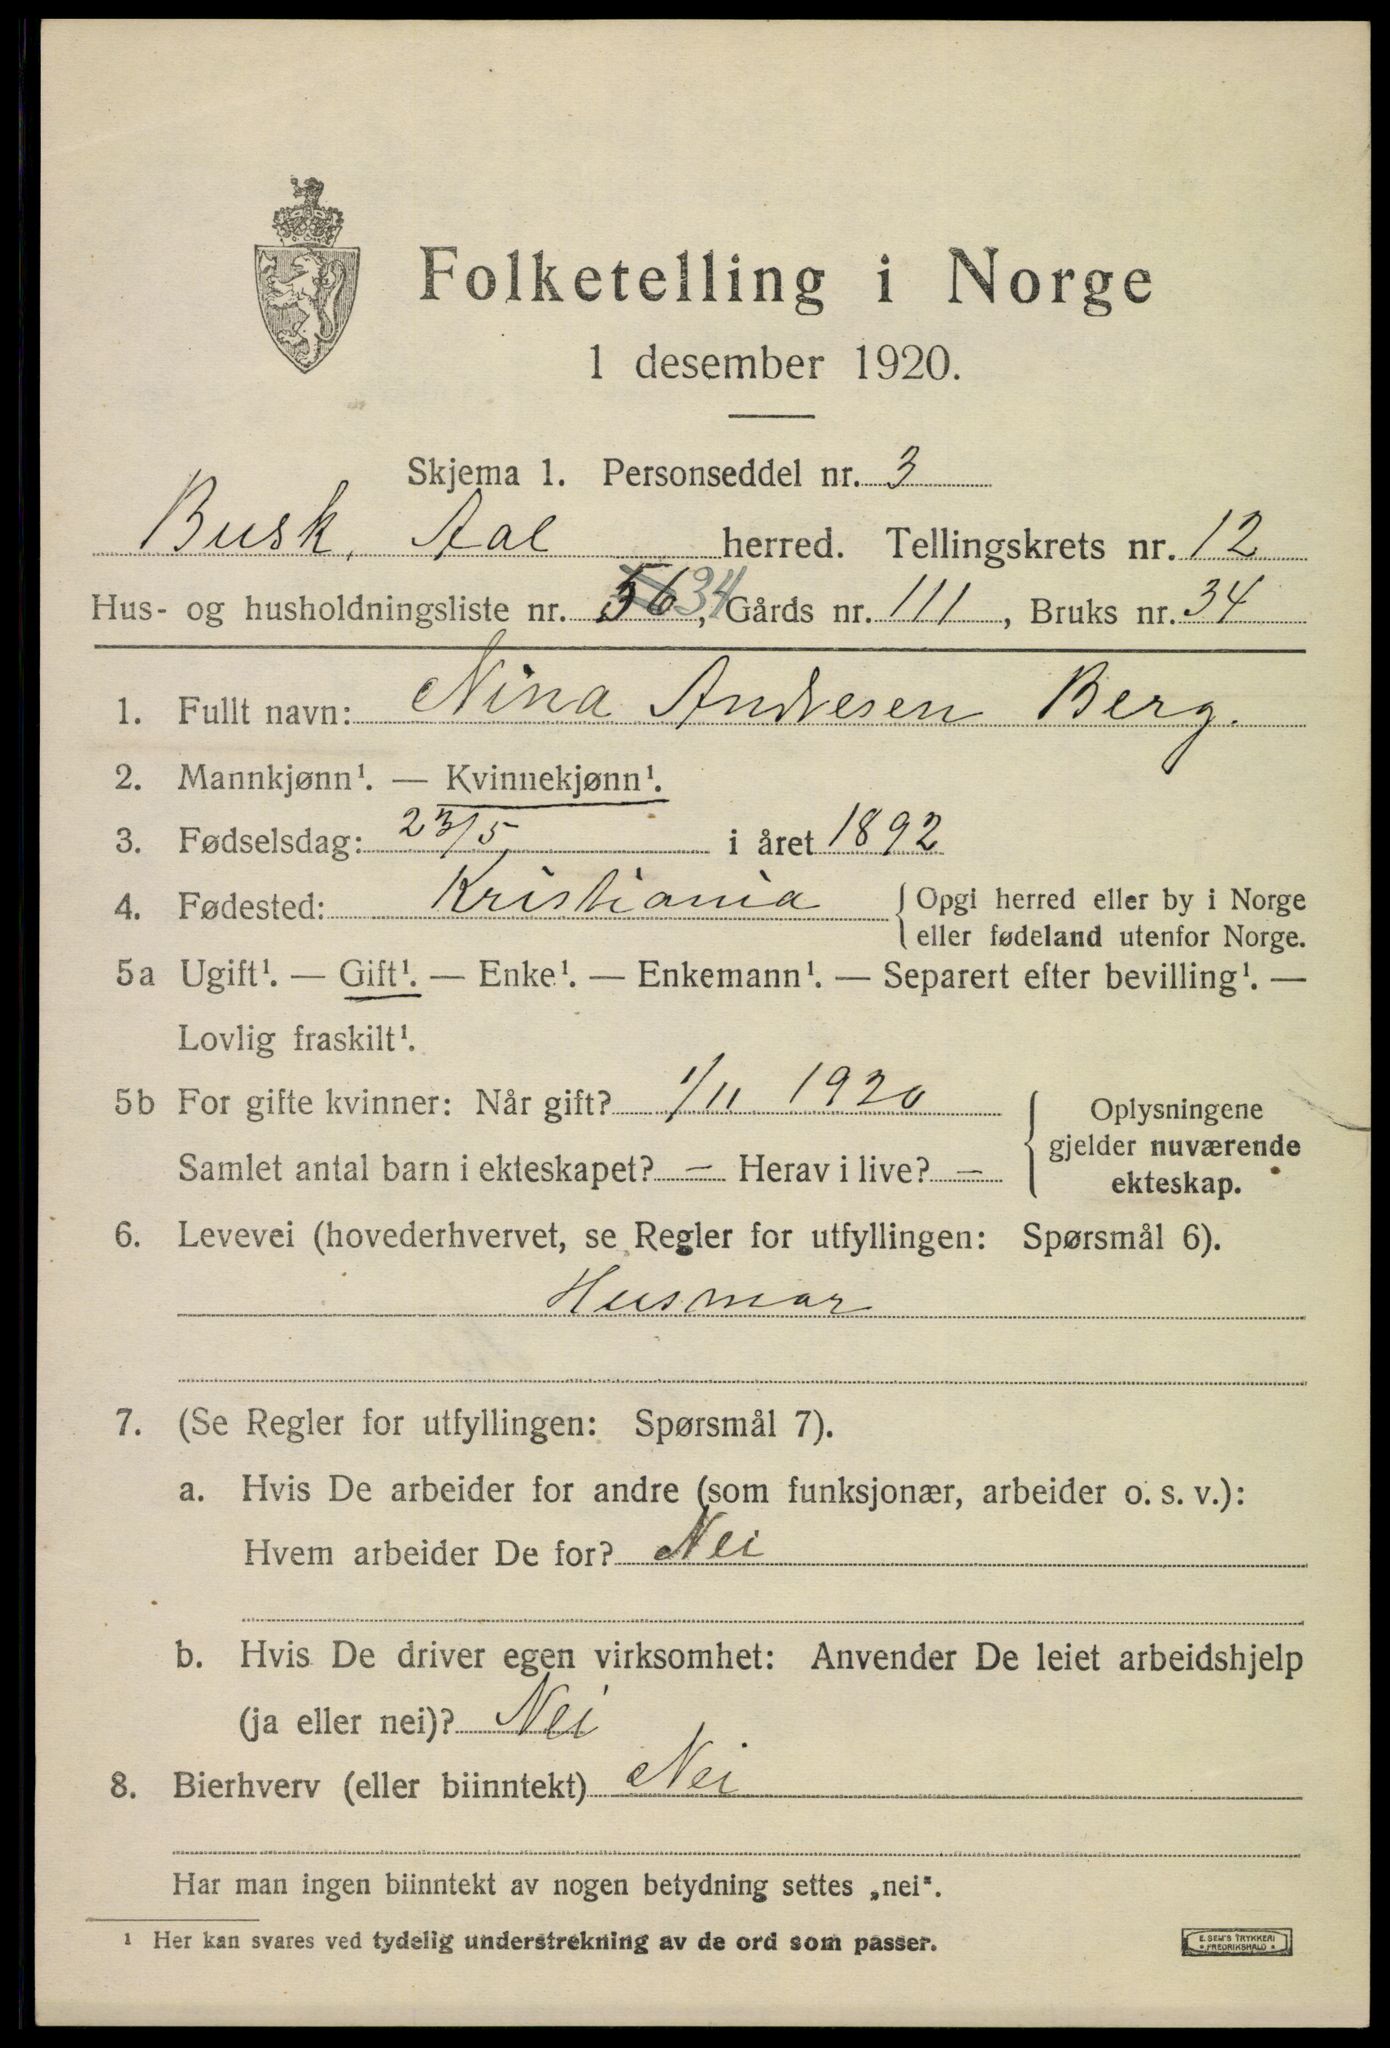 Folketelling i Norge
1 desember 1920.
Skjema 1. Personseddel nr. 3
Busk. Aal herred. Tellingskrets nr. 12
Hus- og husholdningsliste nr. 56 34, Gårds nr. 111, Bruks nr. 34
1. Fullt navn: Nina Andresen Berg.
2. Mannkjønn¹. — Kvinnekjønn¹.
3. Fødselsdag: 23/5 i året 1892
4. Fødested: Kristiania { Opgi herred eller by i Norge
eller fødeland utenfor Norge.
5a Ugift¹. — Gift¹. — Enke¹. — Enkemann¹. — Separert efter bevilling¹. —
Lovlig fraskilt¹.
5b For gifte kvinner: Når gift? 1/11 1920
Samlet antal barn i ekteskapet? — Herav i live? —
{ Oplysningene
gjelder nuværende
ekteskap.
6. Levevei (hovederhvervet, se Regler for utfyllingen: Spørsmål 6).
Husmor
7. (Se Regler for utfyllingen: Spørsmål 7).
a. Hvis De arbeider for andre (som funksjonær, arbeider o. s. v.):
Hvem arbeider De for? Nei
b. Hvis De driver egen virksomhet: Anvender De leiet arbeidshjelp
(ja eller nei)? Nei
8. Bierhverv (eller biinntekt) Nei
Har man ingen biinntekt av nogen betydning settes „nei".
¹ Her kan svares ved tydelig understrekning av de ord som passer.
E. SEM'S TRYKKERI
FREDRIKSHALD